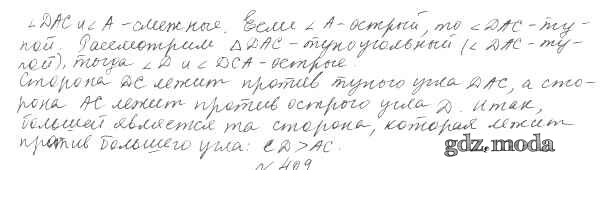 ∠DAC и ∠A - смежные. Если ∠A - острый, то ∠DAC - ту-
пой. Рассмотрим △DAC - тупоугольный (∠DAC - ту-
пой), тогда ∠D и ∠DCA - острые.
Сторона DC лежит против тупого угла DAC, а сто-
рона AC лежит против острого угла D. Итак,
большей является та сторона, которая лежит
против большего угла: CD > AC.
gdz.moda
№ 409